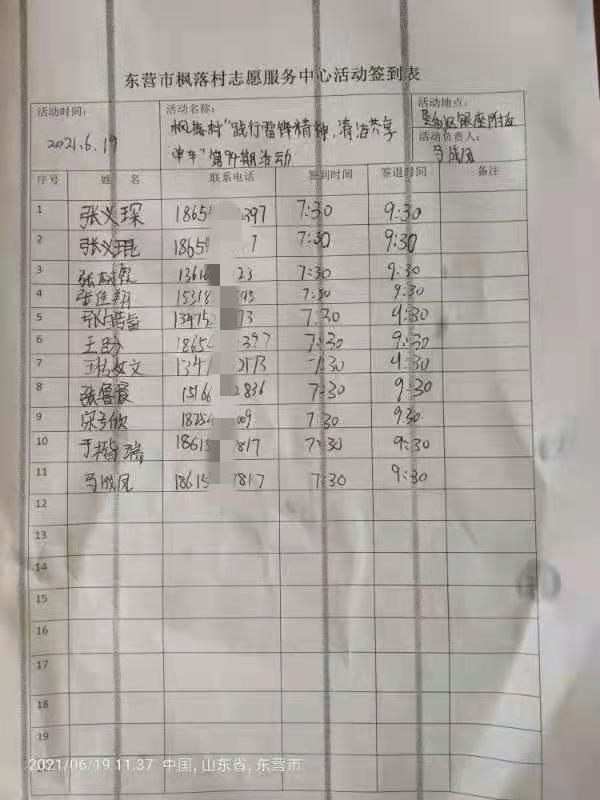 东营市枫落村志愿服务中心活动签到表
活动时间: 2021.6.19
活动名称: 枫落村"践行雷锋精神,清洁共享
单车"第94期活动
活动地点: 东营区银座附近
活动负责人: 马成凤
序号 姓 名 联系电话 签到时间 签退时间 备注
1 张义琛 1865 397 7:30 9:30
2 张义琨 1865 7 7:30 9:30
3 1361 23 7:30 9:30
4 张佳翔 15318 7:30 9:30
5 13475 73 7:30 9:30
6 1865 397 7:30 9:30
7 1347 7:30 9:30
8 张鲁霞 15166 2836 7:30 9:30
9 18254 009 7:30 9:30
10 18615 817 7:30 9:30
11 马成凤 18615 817 7:30 9:30
12
13
14
15
16
17
18
19
2021/06/19 11:37 中国,山东省,东营市